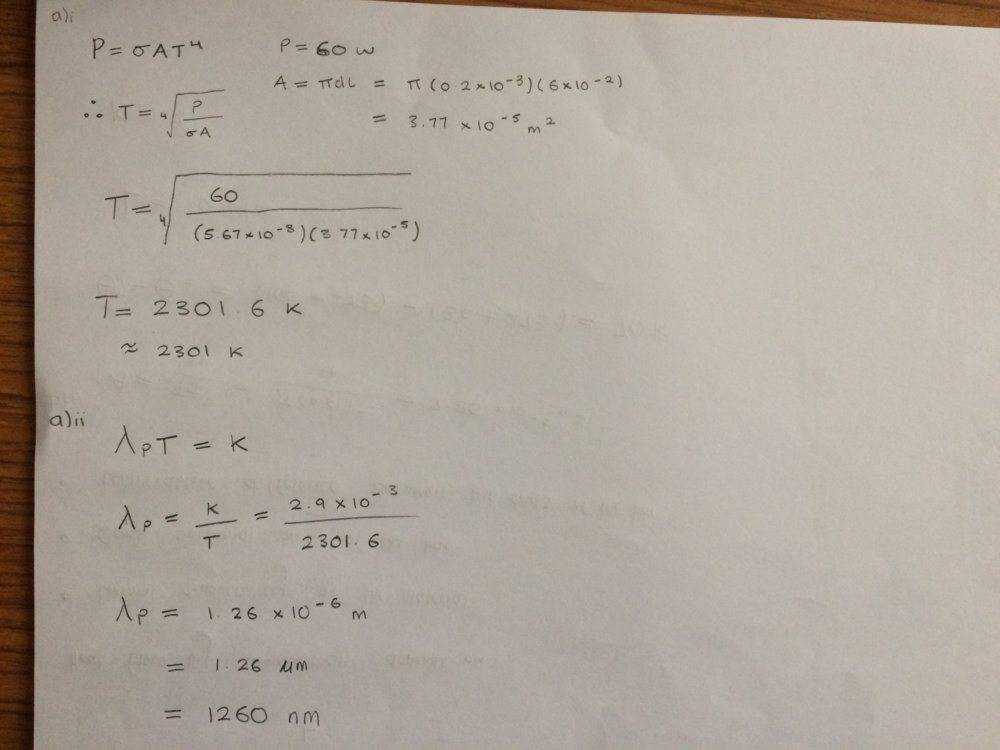 a)i
P = σAT⁴ P = 60 W
A = πdL = π (0.2 × 10⁻³)(6 × 10⁻²)
∴ T = ⁴√(P/σA)
= 3.77 × 10⁻⁵ m²
T = ⁴√(60/(5.67 × 10⁻⁸)(3.77 × 10⁻⁵))
T = 2301.6 K
≈ 2301 K
a)ii
λₚT = K
λₚ = K/T = 2.9 × 10⁻³/2301.6
λₚ = 1.26 × 10⁻⁶ m
= 1.26 μm
= 1260 nm